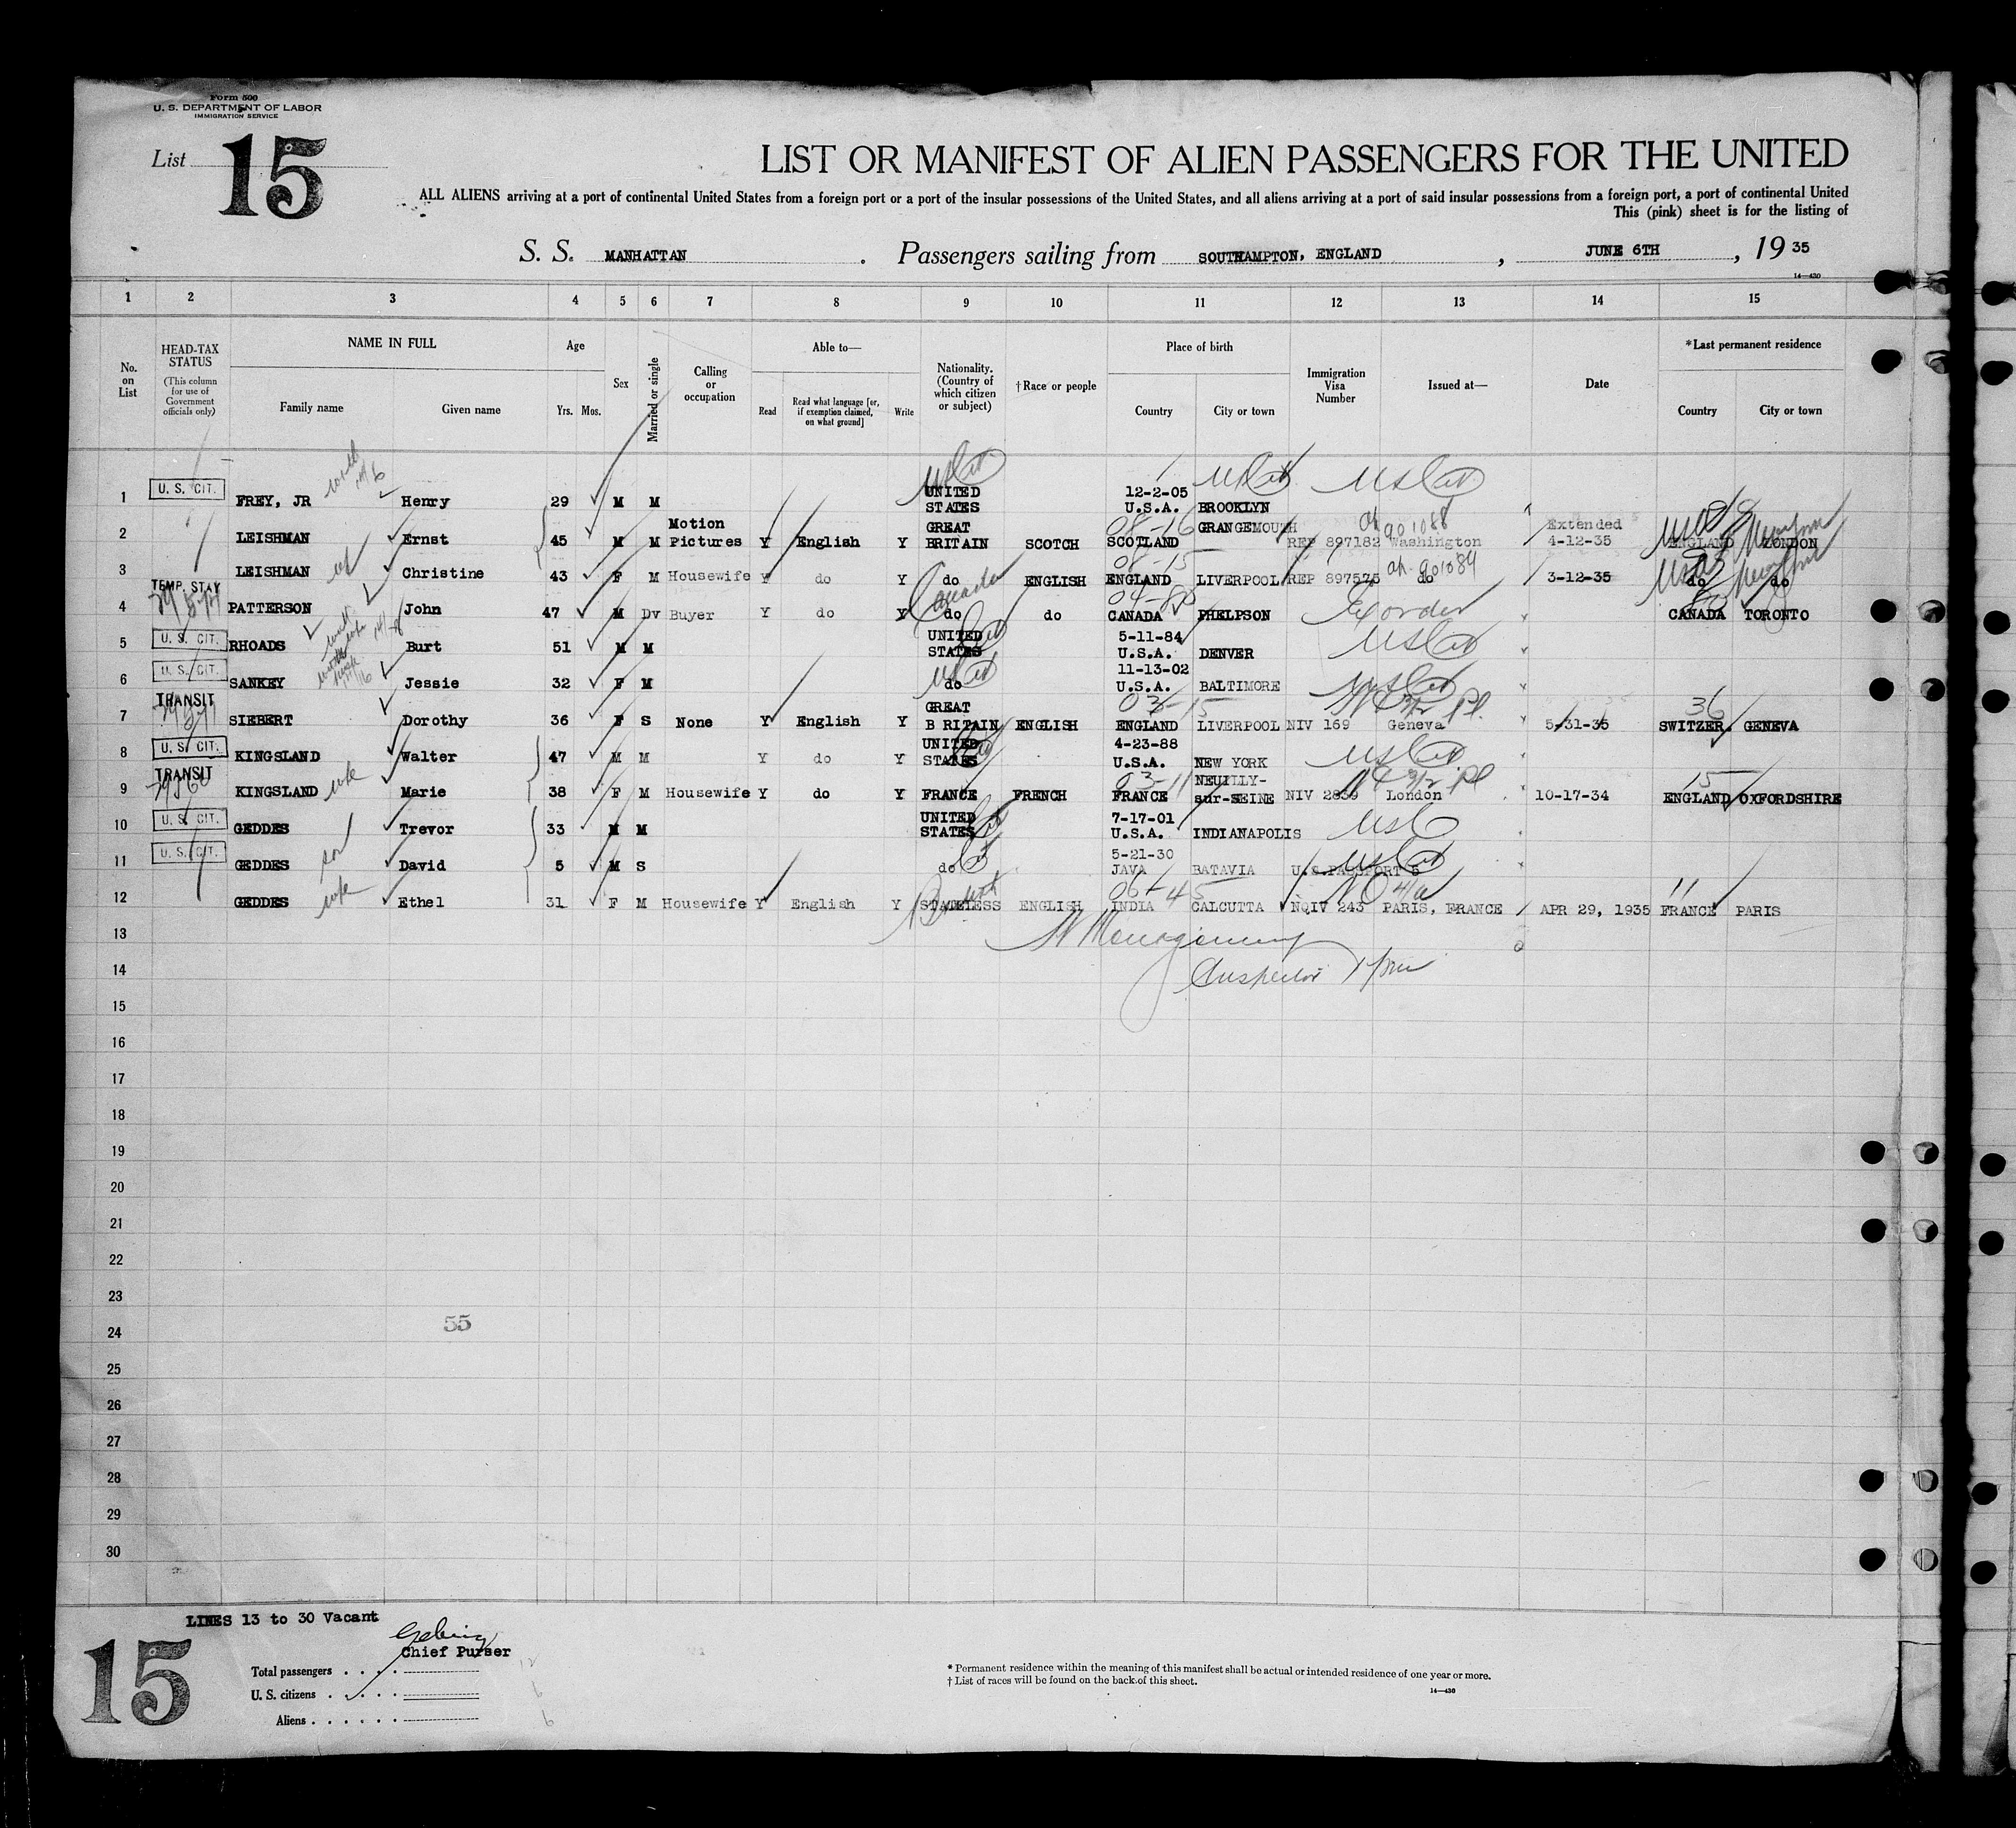 Form 500
U. S. DEPARTMENT OF LABOR
IMMIGRATION SERVICE
List 15
LIST OR MANIFEST OF ALIEN PASSENGERS FOR THE UNITED
ALL ALIENS arriving at a port of continental United States from a foreign port or a port of the insular possessions of the United States, and all aliens arriving at a port of said insular possessions from a foreign port, a port of continental United
This (pink) sheet is for the listing of
S. S. MANHATTAN . Passengers sailing from SOUTHAMPTON, ENGLAND , JUNE 6TH , 19 35
14—430
1 2 3 4 5 6 7 8 9 10 11 12 13 14 15
No. on List
HEAD-TAX STATUS (This column for use of Government officials only)
NAME IN FULL
Family name Given name
Age
Yrs. Mos.
Sex
Married or single
Calling or occupation
Able to—
Read
Read what language [or, if exemption claimed, on what ground]
Write
Nationality. (Country of which citizen or subject)
† Race or people
Place of birth
Country City or town
Immigration Visa Number
Issued at—
Date
* Last permanent residence
Country City or town
1 U. S. CIT. FREY, JR Henry 29 M M UNITED STATES 12-2-05 U.S.A. BROOKLYN US Cit
2 LEISHMAN Ernst 45 M M Motion Pictures Y English Y GREAT BRITAIN SCOTCH 08-16 SCOTLAND GRANGEMOUTH REP 897182 Washington 901088 Extended 4-12-35 ENGLAND LONDON
3 LEISHMAN Christine 43 F M Housewife Y do Y do ENGLISH 08-15 ENGLAND LIVERPOOL REP 897575 do 901084 3-12-35 do do
4 TEMP. STAY PATTERSON John 47 M Dv Buyer Y do Y Canada do do CANADA PHELPSON CANADA TORONTO
5 U. S. CIT. RHOADS Burt 51 M M UNITED STATES 5-11-84 U.S.A. DENVER US Cit
6 U. S. CIT. SANKEY Jessie 32 F M do 11-13-02 U.S.A. BALTIMORE US Cit
7 TRANSIT SIEBERT Dorothy 36 F S None Y English Y GREAT BRITAIN ENGLISH 03-15 ENGLAND LIVERPOOL NIV 169 Geneva 5-31-35 36 SWITZER. GENEVA
8 U. S. CIT. KINGSLAND Walter 47 M M Y do Y UNITED STATES 4-23-88 U.S.A. NEW YORK US Cit
9 TRANSIT KINGSLAND wife Marie 38 F M Housewife Y do Y FRANCE FRENCH 03-11 FRANCE NEUILLY-sur-SEINE NIV 2839 London 10-17-34 15 ENGLAND OXFORDSHIRE
10 U. S. CIT. GEDDES Trevor 33 M M UNITED STATES 7-17-01 U.S.A. INDIANAPOLIS USC
11 U. S. CIT. GEDDES son David 5 M S do 5-21-30 JAVA BATAVIA U.S. PASSPORT US Cit
12 GEDDES wife Ethel 31 F M Housewife Y English Y STATELESS ENGLISH 06-45 INDIA CALCUTTA NQIV 243 PARIS, FRANCE APR 29, 1935 11 FRANCE PARIS
13
14 Inspector
15
16
17
18
19
20
21
22
23
55
24
25
26
27
28
29
30
LINES 13 to 30 Vacant
15
Chief Purser
Total passengers . . . . 12
U. S. citizens . . . . 6
Aliens . . . . . . 6
* Permanent residence within the meaning of this manifest shall be actual or intended residence of one year or more.
† List of races will be found on the back of this sheet.
14—430